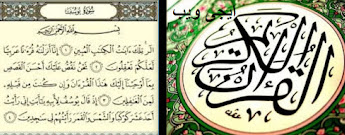 سورة يوسف
بسم
الر تلك ءايت الكتب المبين ١ إنا أنزلنه قرءنا عربيا
لعلكم تعقلون ٢ نحن نقص عليك أحسن القصص
بما أوحينا إليك هذا القرءان وإن كنت من قبله
لمن الغفلين ٣ إذ قال يوسف لأبيه يأبت إني رأيت
أحد عشر كوكبا والشمس والقمر رأيتهم لي سجدين ٤
ايجى ويب
القرآن الكريم